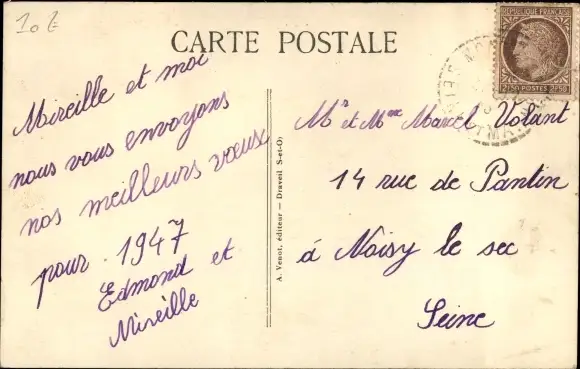 10 E
CARTE POSTALE
RÉPUBLIQUE FRANÇAISE
2F50 POSTES 2F50
Mireille et moi
nous vous envoyons
nos meilleurs vœux
pour 1947
Edmond et
Mireille
A. Venot, éditeur — Draveil (S-et-O)
Mr et Mme Marcel Volant
14 rue de Pantin
à Noisy le sec
Seine